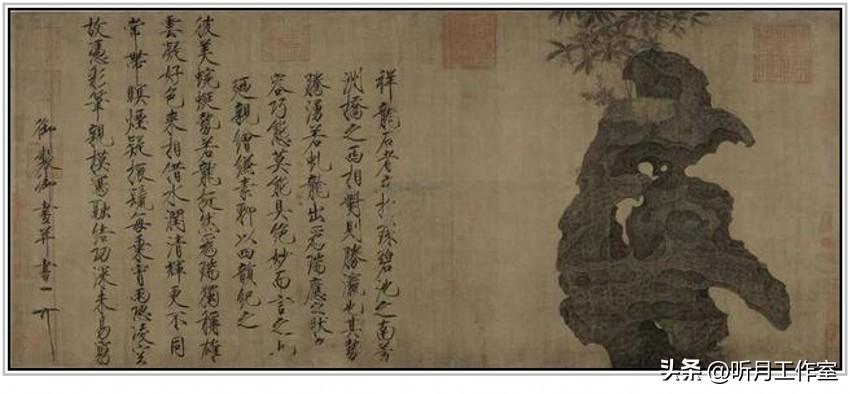 祥龍石者立於環碧池之南芳
洲橋之西相對則勝瀛也其勢
騰湧若虬龍出為瑞應之狀奇
容巧態莫能具絕妙而言之也
廼親繪縑素聊以四韻紀之
彼美蜿蜒勢若龍挺然為瑞獨稱雄
雲凝好色來相借水潤清輝更不同
常帶暝煙疑振鬣每乘宵雨恐凌空
故憑彩筆親模寫融結功深未易窮
御製御畫并書
头条 @听月工作室